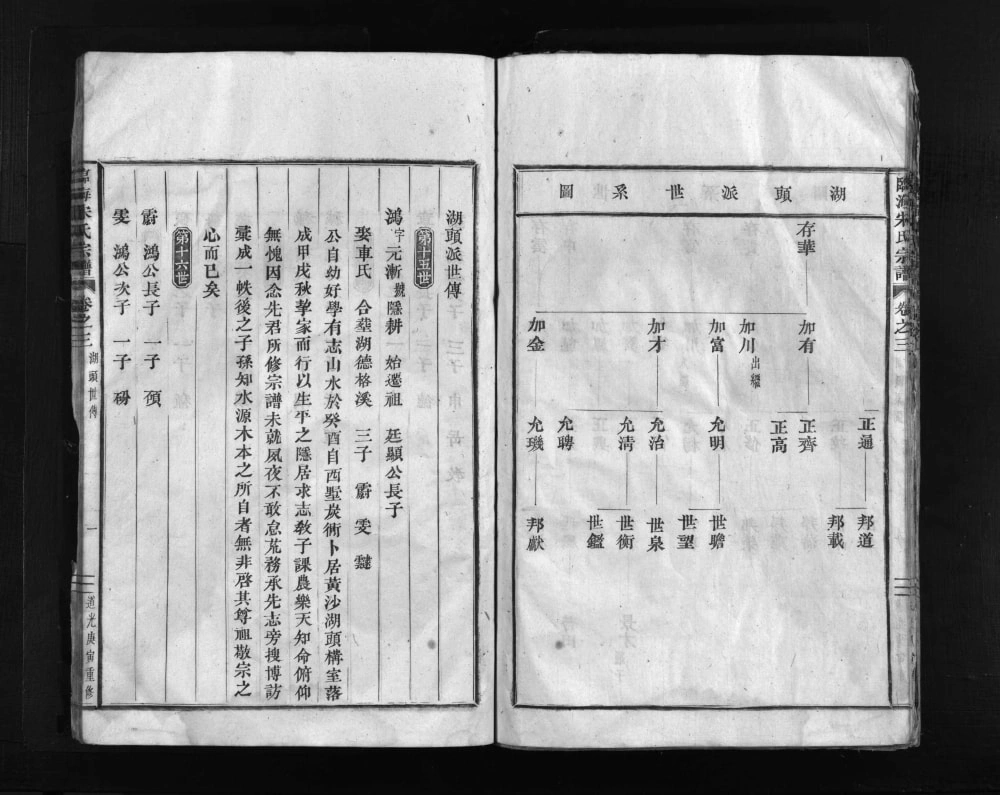 臨海朱氏宗譜 卷之三
湖頭派世系圖
存華
加有
加川 出繼
加富
加才
加金
正通
正齊
正高
允明
允治
允清
允聘
允璣
邦道
邦載
世瞻
世望
世泉
世衡
世鑑
邦獻
湖頭派世傳
第十五世
鴻 字元漸號隱耕 始遷祖 廷顯公長子
娶車氏 合葬湖德格溪 三子 霨 雯 靆
公自幼好學有志山水於癸酉自西墅炭術卜居黃沙湖頭構室落
成甲戌秋挈家而行以生平之隱居求志敎子課農樂天知命俯仰
無愧因念先君所修宗譜未就夙夜不敢怠荒務承先志旁搜博訪
彙成一帙後之子孫知水源木本之所自者無非啓其尊祖敬宗之
心而已矣
第十六世
霨 鴻公長子 一子 䪴
雯 鴻公次子 一子 砏
臨海朱氏宗譜 卷之三 湖頭世傳 一 道光庚寅重修